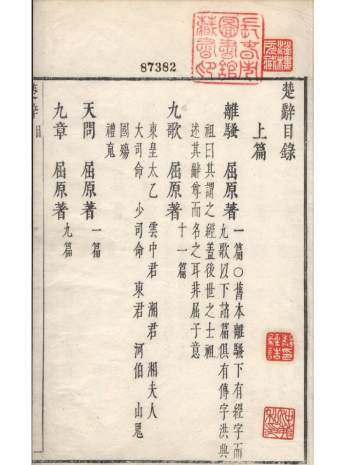 87382
長春市
圖書館
藏書印
楚辭目錄
上篇
離騷 屈原著 一篇〇舊本離騷下有經字而
九歌以下諸篇俱有傳字洪興
祖曰其謂之經蓋後世之士祖
述其辭尊而名之耳非屈子意
九歌 屈原著 十一篇
東皇太乙 雲中君 湘君 湘夫人
大司命 少司命 東君 河伯 山鬼
國殤
禮魂
天問 屈原著 一篇
九章 屈原著 九篇
楚辭 目